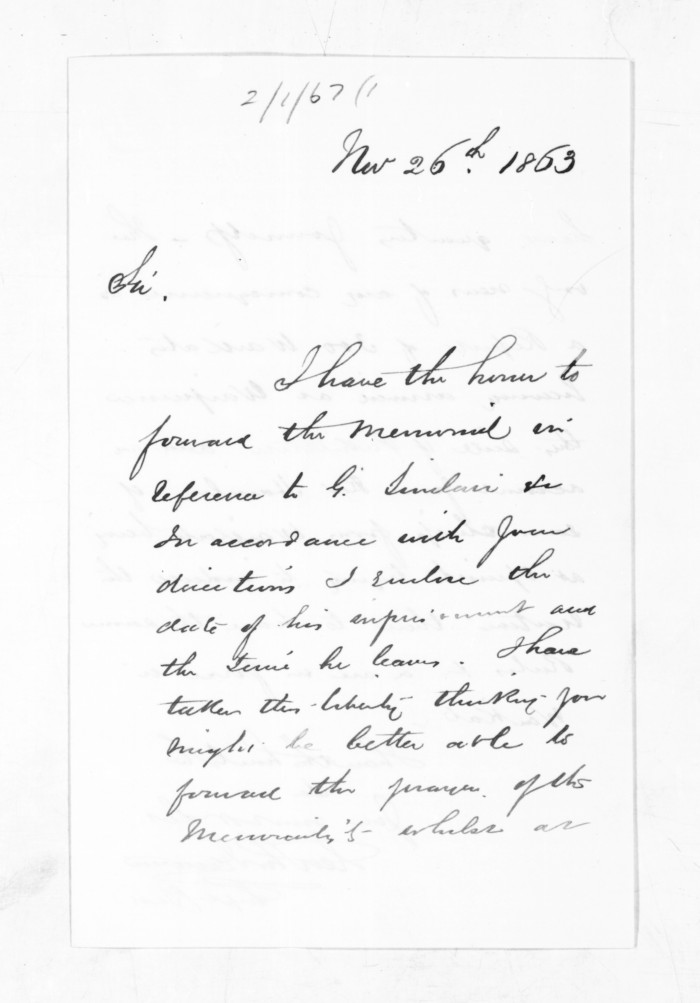 2/1/67 (1
Nov 26th. 1863
Sir.
I have the honor to
forward the Memorial in
reference to G. Sinclair &c
In accordance with your
directions I enclose the
date of his imprisonment and
the time he leaves. I have
taken this liberty thinking you
might be better able to
forward the prayer of the
Memorialists whilst at